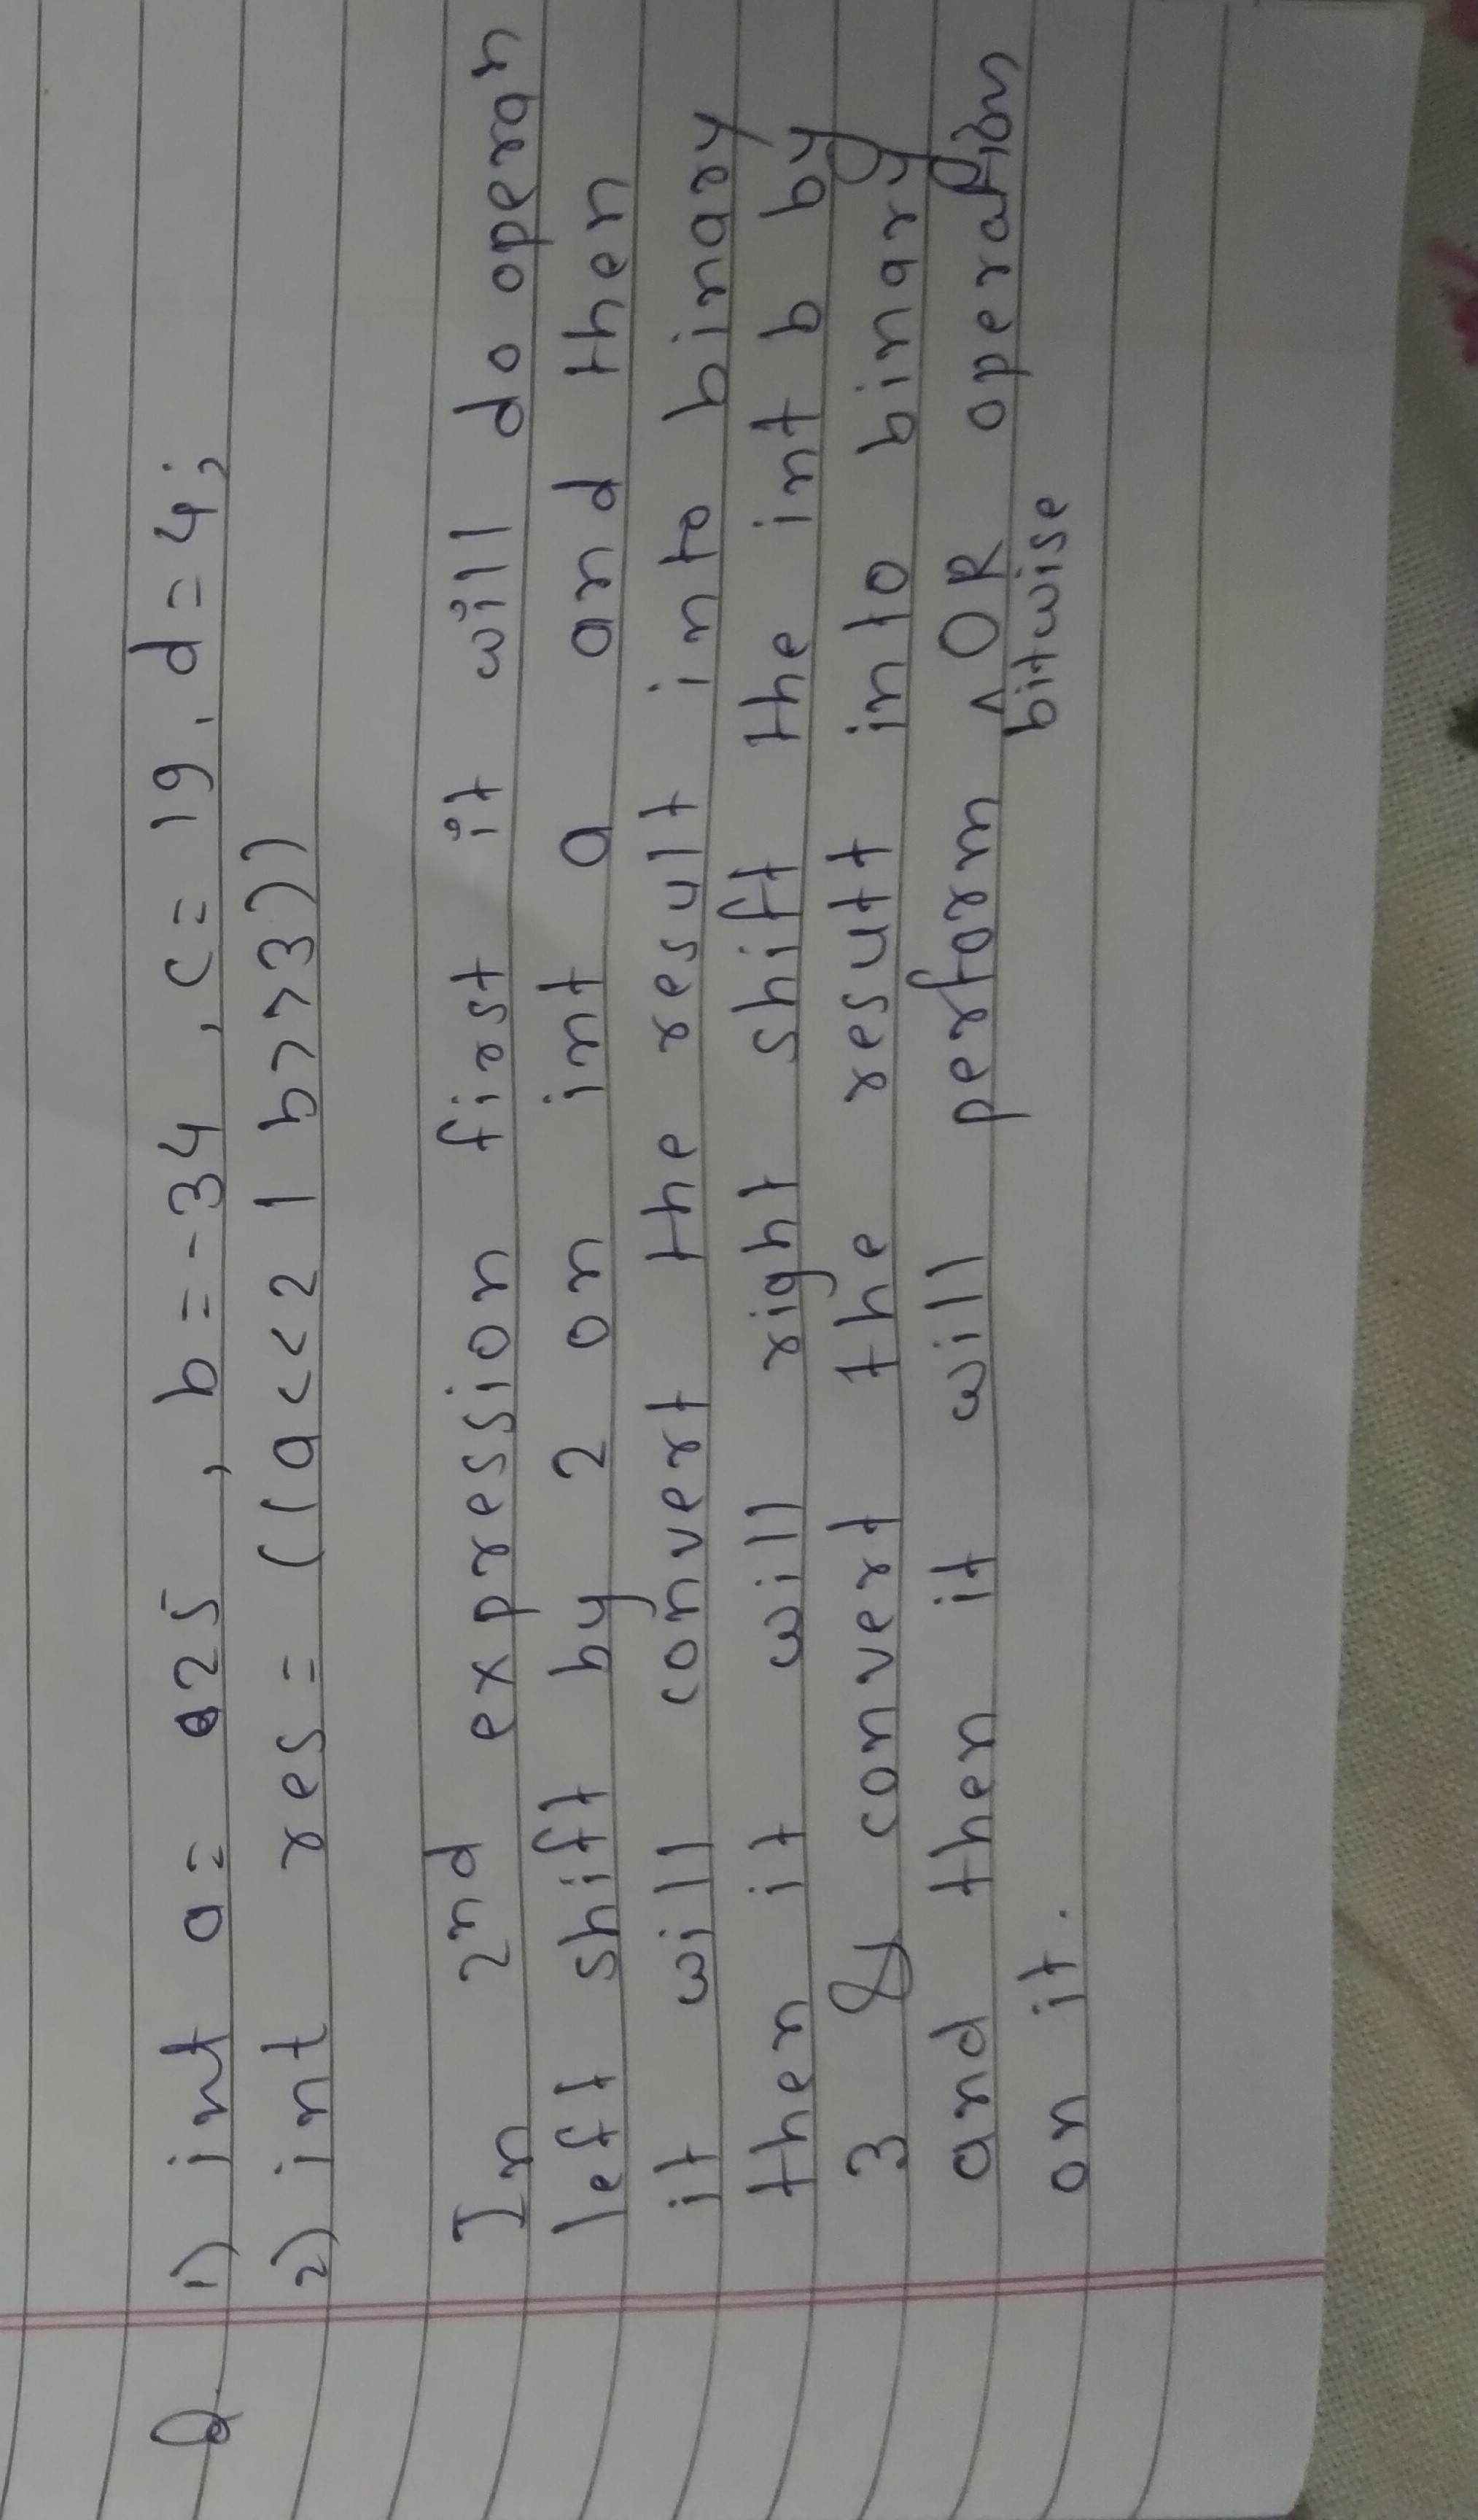 Q. 1) int a = 25 , b = -34 , c = 19 , d = 4;
2) int res = ((a<<2 | b>>3))
In 2nd expression first it will do operan
left shift by 2 on int a and then
it will convert the result into binary
then it will right shift the int b by
3 & convert the result into binary
and then it will perform ^ OR operation
bitwise
on it.